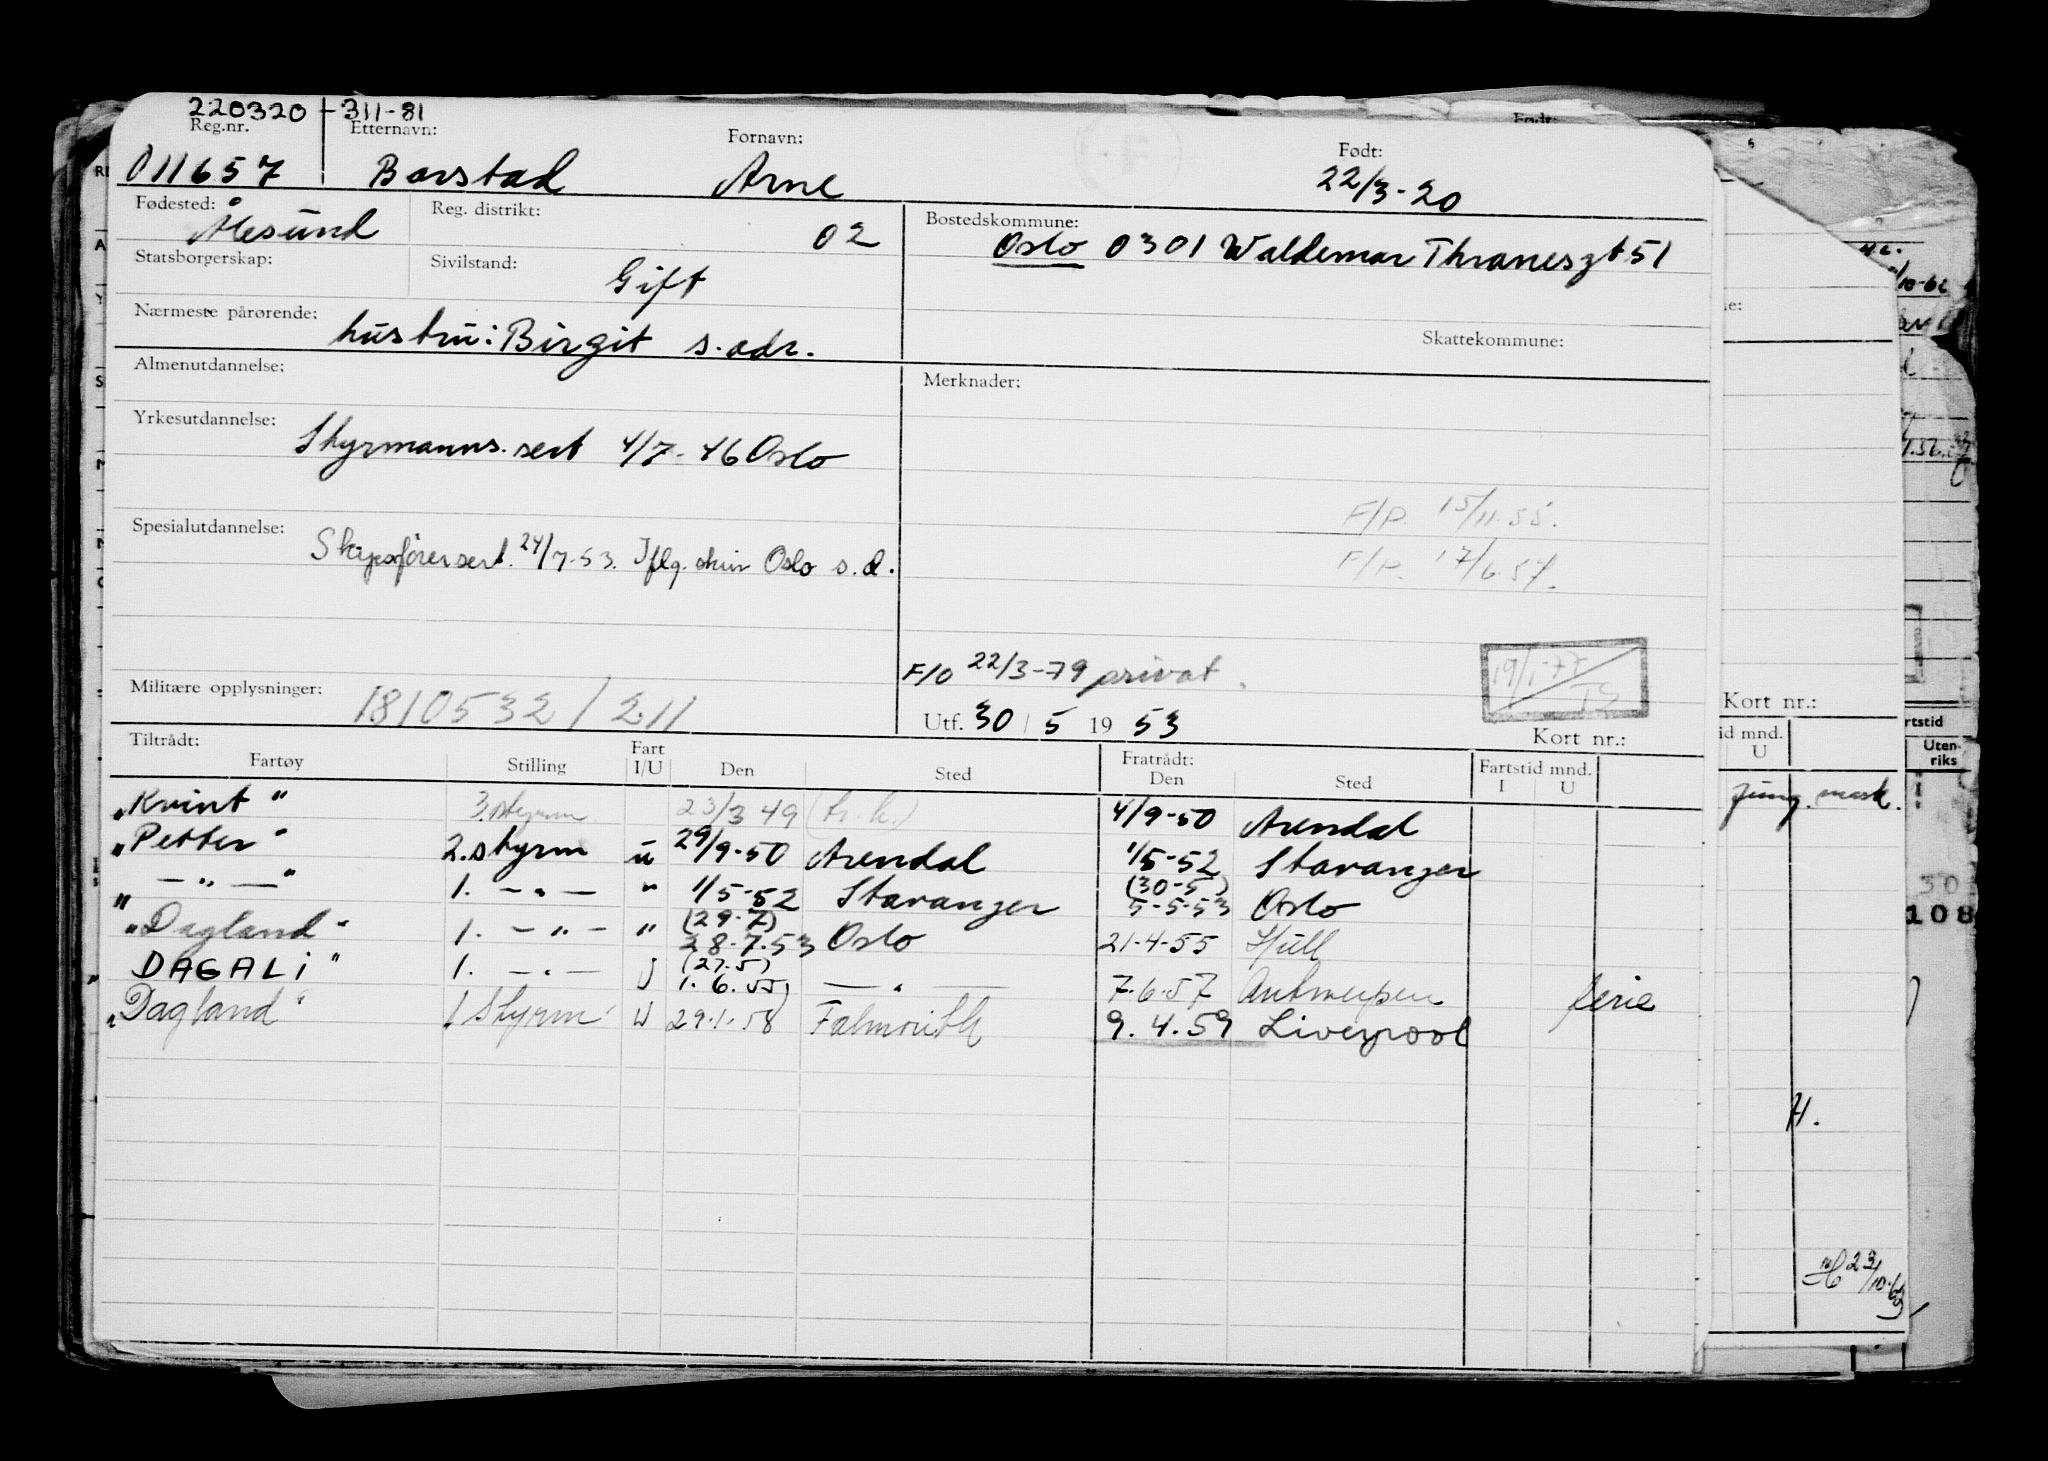 220320-311-81
Reg.nr. Etternavn: Fornavn: Født:
011657 Barstad Arne 22/3-20
Fødested: Ålesund Reg. distrikt: 02 Bostedskommune: Oslo 0301 Waldemar Thranesgt 51
Statsborgerskap: Sivilstand: Gift
Nærmeste pårørende: hustru: Birgit s. adr. Skattekommune:
Almenutdannelse: Merknader:
Yrkesutdannelse: Styrmanns.sert 4/7-46 Oslo
F/P. 15/11.55.
Spesialutdannelse: Skipsførersert. 24/7-53. Iflg. skriv Oslo s.d.
F/P. 17/6.57.
F/O 22/3-79 privat.
19/1-77
Militære opplysninger: 1810532/211
Utf. 30/5 1953
Kort nr.:
Tiltrådt: Fratrådt:
Fartøy Stilling Fart I/U Den Sted Den Sted Fartstid mnd. I U
"Kvint" 3.styrm 23/3 49 4/9-50 Arendal
"Petter" 2.styrm u 29/9-50 Arendal 1/5-52 Stavanger
" — " — " 1. — " — " 1/5-52 Stavanger (30-5) 5-5-53 Oslo
"Dagland" 1. — " — " (29-7) 28.7.53 Oslo 21-4-55 Hull
"DAGALI" 1. — " — U (27.5) 1.6.55 — " — 7.6.57 Antwerpen ferie
"Dagland" 1 styrm U 29.1.58 Falmouth 9.4.59 Liverpool
Kort nr.:
id mnd.
U
rtstid
Uten-
riks
108
H.
23/10-63